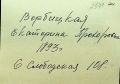 Вербицкая
Екатерина Прохоровна
1893 г.
С. Слободская 108.